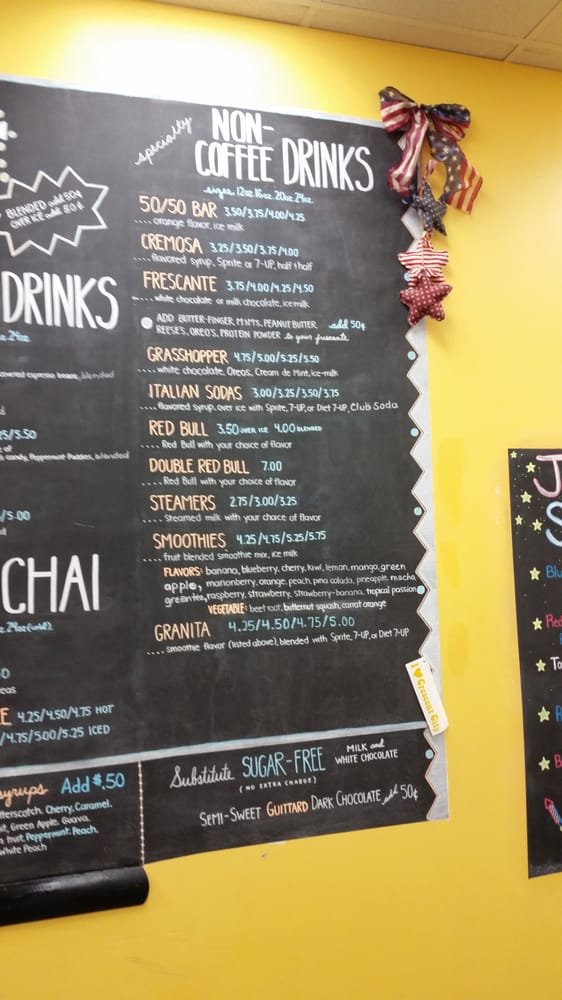 BLENDED add 50¢
OVER ICE add 50¢
DRINKS
covered espresso beans, blended
5/5.50
candy, Peppermint Patties, blended
CHAI
4.25/4.50/4.75 HOT
4.75/5.00/5.25 ICED
syrups Add $.50
Cherry, Caramel,
Green Apple, Guava,
fruit, Peppermint, Peach,
White Peach
specialty NON-
COFFEE DRINKS
sizes 12oz. 16oz. 20oz. 24oz.
50/50 BAR 3.50/3.75/4.00/4.25
....orange flavor, ice milk
CREMOSA 3.25/3.50/3.75/4.00
....flavored syrup, Sprite or 7-UP, half & half
FRESCANTE 3.75/4.00/4.25/4.50
....white chocolate or milk chocolate, ice milk
ADD BUTTER-FINGER, M&M'S, PEANUT BUTTER, add 50¢
REESE'S, OREO'S, PROTEIN POWDER to your frescante
GRASSHOPPER 4.75/5.00/5.25/5.50
....white chocolate, Oreos, Cream de Mint, ice-milk
ITALIAN SODAS 3.00/3.25/3.50/3.75
....flavored syrup, over ice with Sprite, 7-UP, or Diet 7-UP, Club Soda
RED BULL 3.50 OVER ICE 4.00 BLENDED
.... Red Bull with your choice of flavor
DOUBLE RED BULL 7.00
.... Red Bull with your choice of flavor
STEAMERS 2.75/3.00/3.25
.... Steamed milk with your choice of flavor
SMOOTHIES 4.25/4.75/5.25/5.75
....fruit blended smoothie mix, ice milk
FLAVORS: banana, blueberry, cherry, kiwi, lemon, mango, green
apple, marionberry, orange, peach, pina colada, pineapple, macha
green tea, raspberry, strawberry, strawberry-banana, tropical passion
VEGETABLE: beet root, butternut squash, carrot orange
GRANITA 4.25/4.50/4.75/5.00
.... smoothie flavor (listed above), blended with Sprite, 7-UP, or Diet 7-UP
Substitute SUGAR-FREE MILK and
WHITE CHOCOLATE
(NO EXTRA CHARGE)
SEMI-SWEET GUITTARD DARK CHOCOLATE add 50¢
J
S
Blu
Red
To
B